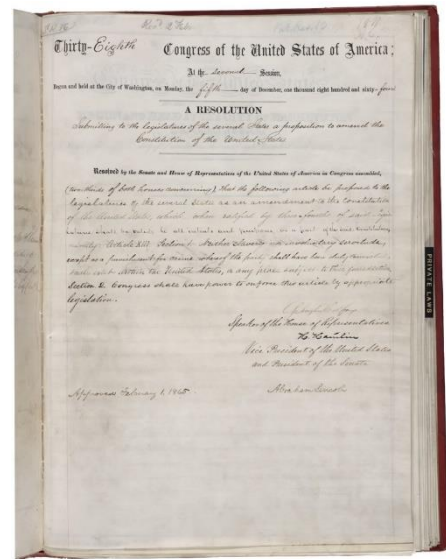 Thirty-Eighth Congress of the United States of America;
At the second Session,
Begun and held at the City of Washington, on Monday, the fifth day of December, one thousand eight hundred and sixty-four
A RESOLUTION
Submitting to the legislatures of the several States a proposition to amend the
Constitution of the United States.
Resolved by the Senate and House of Representatives of the United States of America in Congress assembled,
(two-thirds of both houses concurring), that the following article be proposed to the
legislatures of the several States as an amendment to the Constitution
of the United States, which, when ratified by three-fourths of said
shall be valid, to all intents and purposes, as a part of the said Constitution
namely: Article XIII. Section 1. Neither slavery nor involuntary servitude,
except as a punishment for crime whereof the party shall have been duly convicted,
shall exist within the United States, or any place subject to their jurisdiction.
Section 2. Congress shall have power to enforce this article by appropriate
legislation.
Speaker of the House of Representatives
H. Hamlin
Vice President of the United States
and President of the Senate
Approved February 1, 1865.
Abraham Lincoln
PRIVATE LAWS